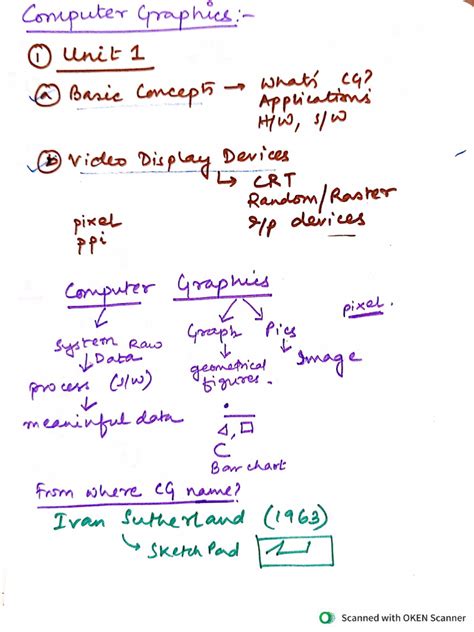 Computer Graphics:-
① Unit 1
ⓐ Basic Concepts → What's CG?
Applications
H/W, S/W
ⓑ Video Display Devices
↳ CRT
Random/Raster
I/p devices
pixel
ppi
Computer Graphics
pixel.
Graph Pics
System Raw
↓ Data
geometrical
figures.
Image
process (S/W)
meaningful data
C
Bar chart
From where CG name?
Ivan Sutherland (1963)
↳ Sketch Pad
Scanned with OKEN Scanner